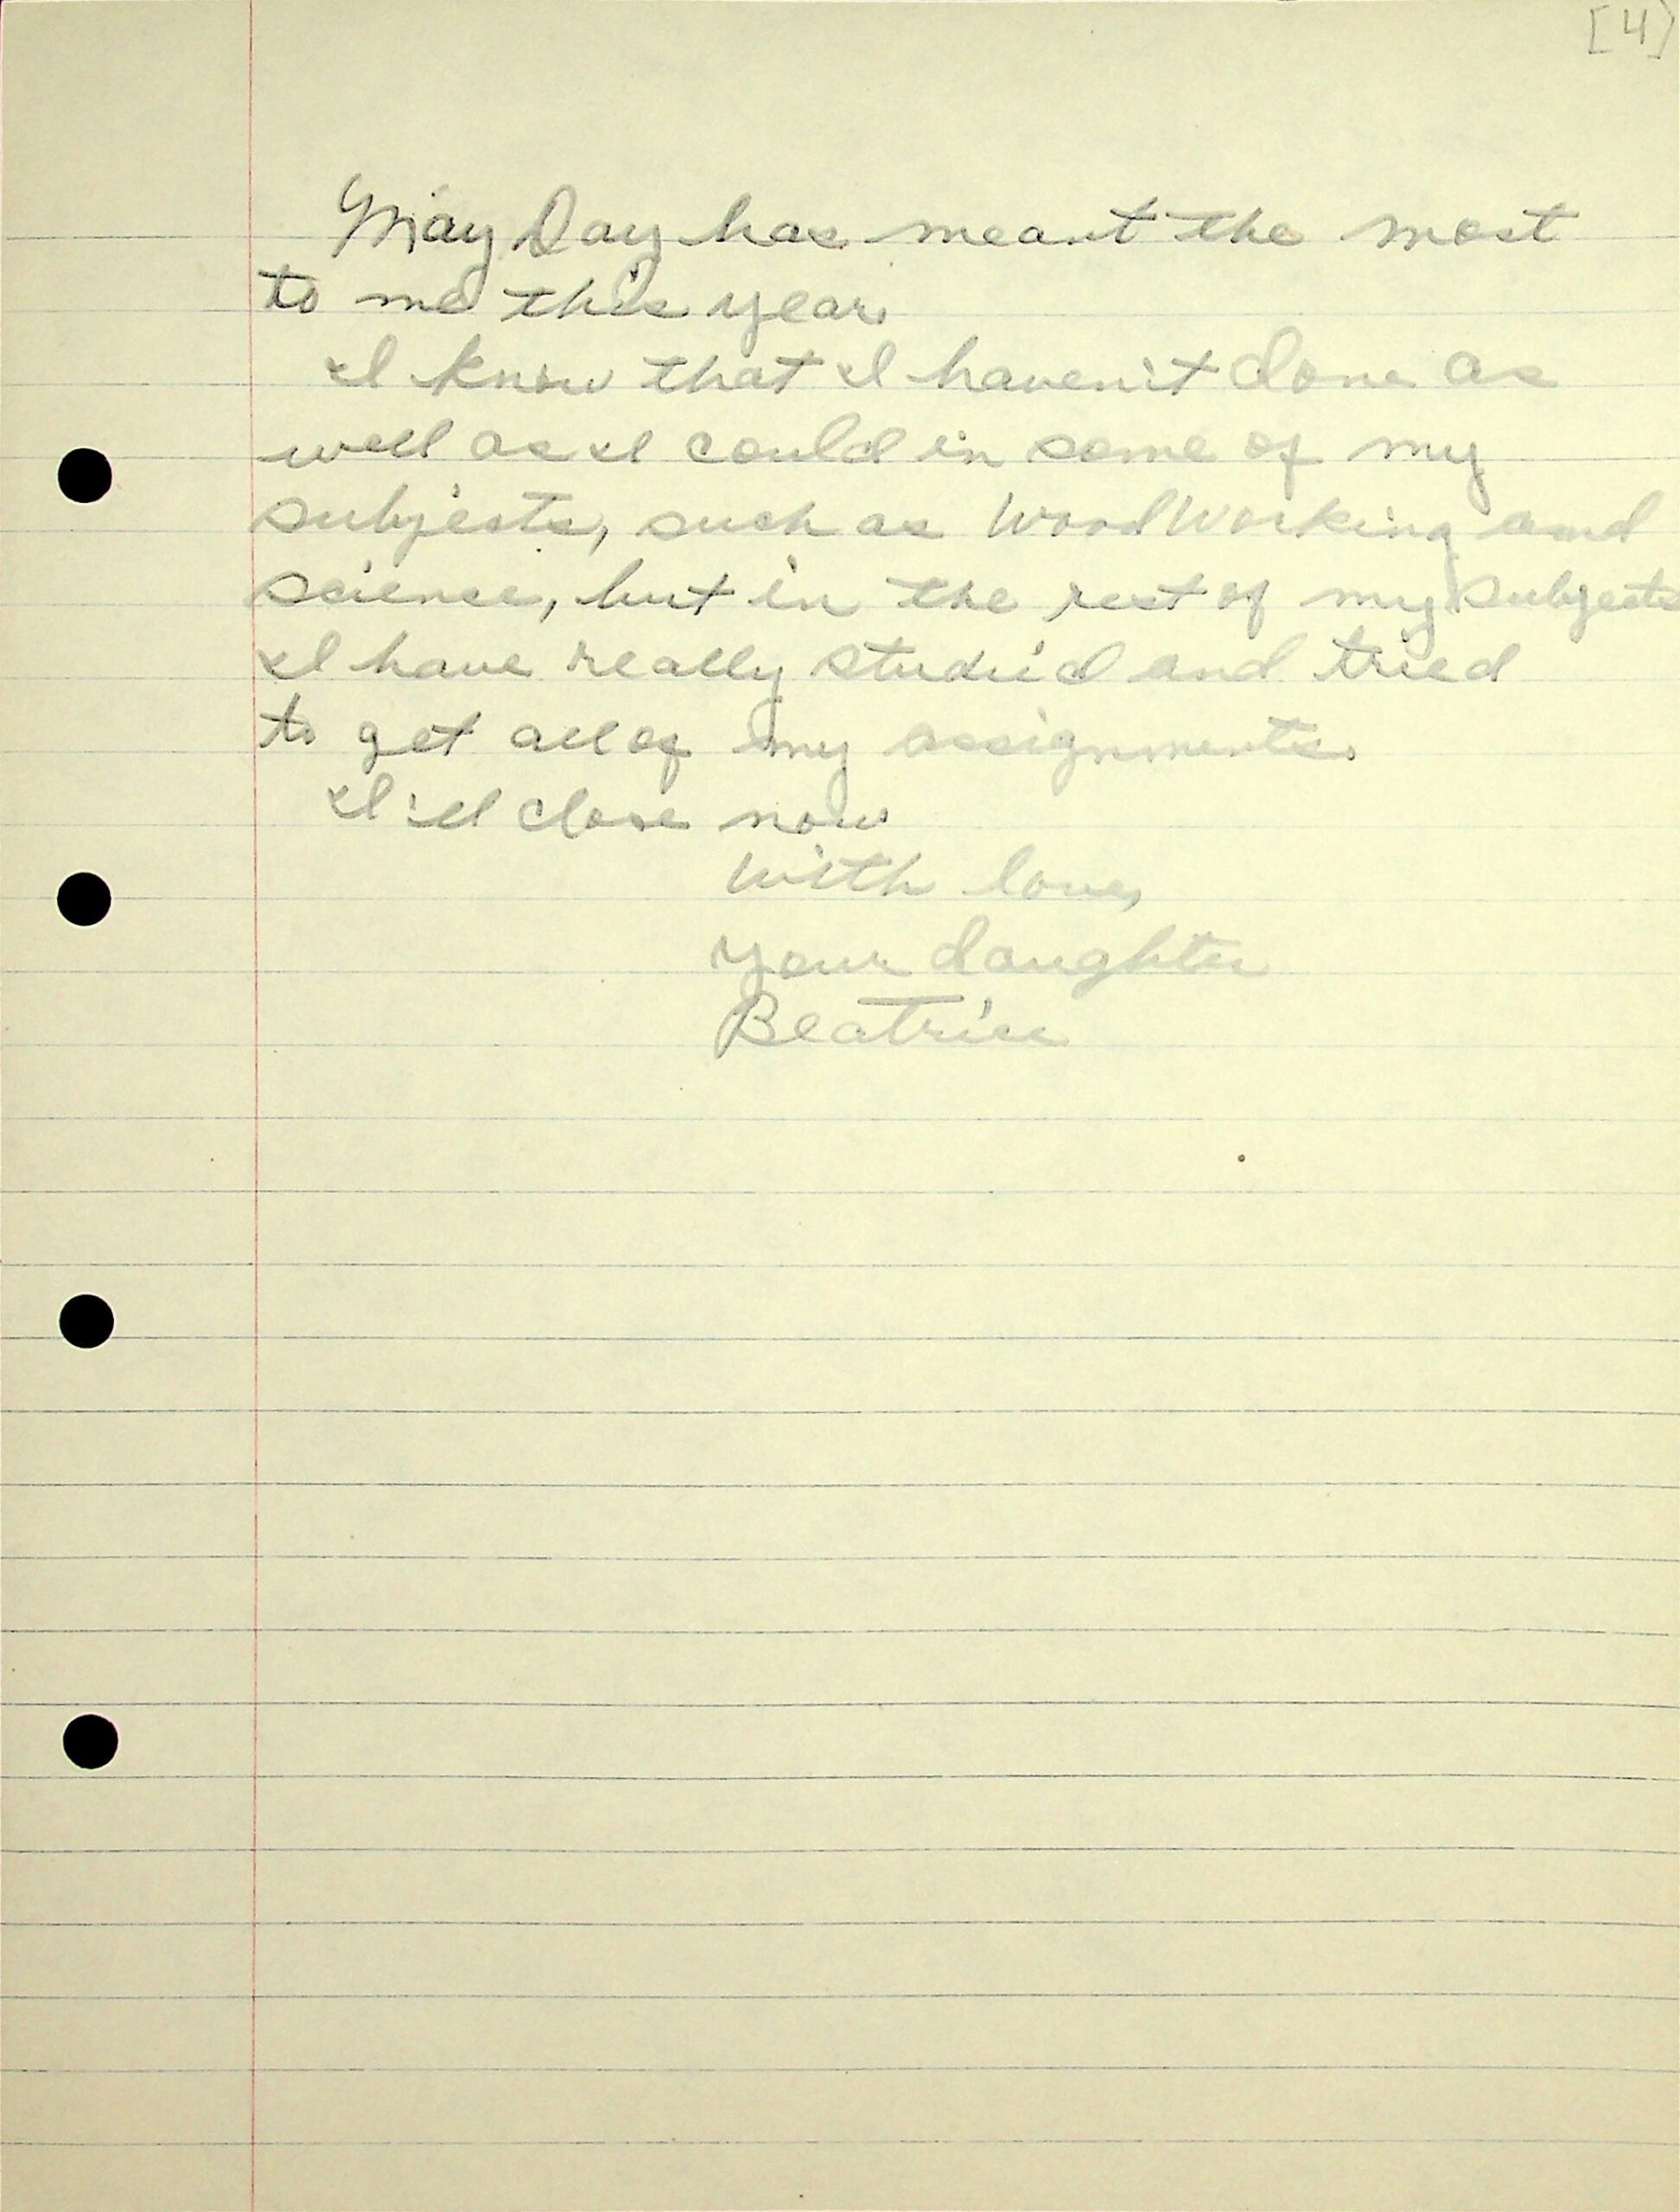 [4]
May Day has meant the most
to me this year.
I know that I haven't done as
well as I could in some of my
subjests, such as WoodWorking and
science, but in the rest of my subjects
I have really studied and tried
to get all of my assignments.
I'll close now
With love,
Your daughter
Beatrice